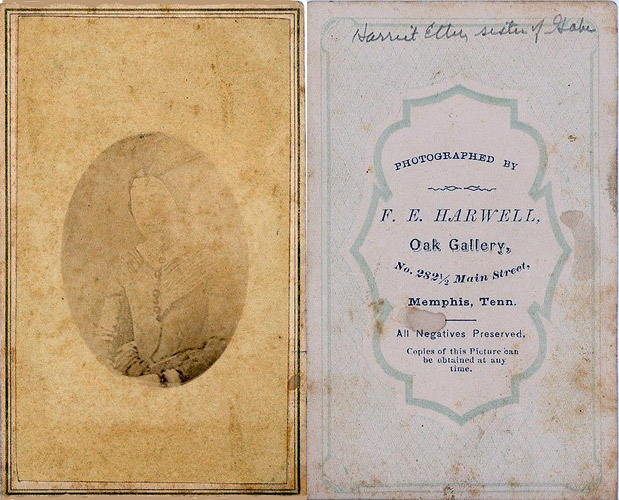 Harriet Etter sister of Gabe
PHOTOGRAPHED BY
F. E. HARWELL,
Oak Gallery,
No. 282½ Main Street,
Memphis, Tenn.
All Negatives Preserved.
Copies of this Picture can
be obtained at any
time.